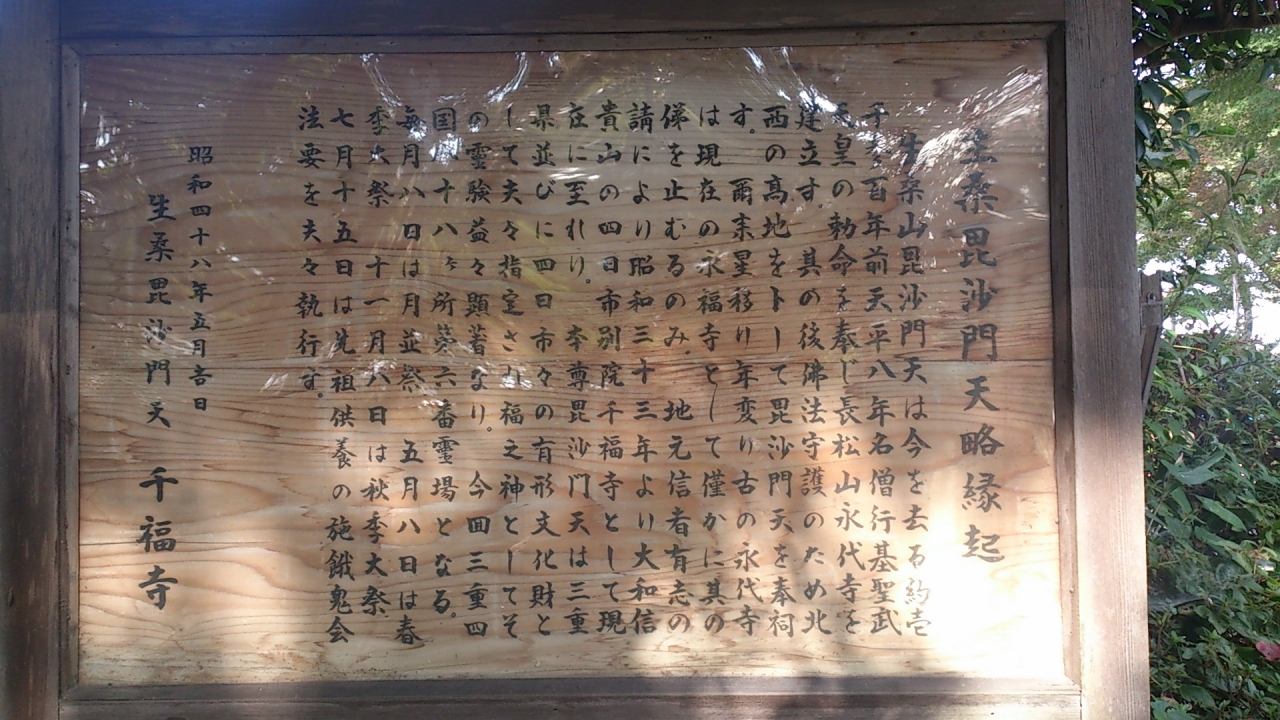 生桑毘沙門天略縁起
生桑山毘沙門天は今を去る約壱
千弐百年前天平八年名僧行基聖武
天皇の勅命を奉じ長松山永代寺を
建立す。其の後佛法守護のため北
西の高地をトして毘沙門天を奉祠
す。爾来星移り年変り古の永代寺
は現在の永福寺として僅かに其の
俤を止むるのみ、地元信者有志の
請により昭和三十三年より大和信
貴山の四日市別院千福寺として現
在に至れり。本尊毘沙门天は三重
県並びに四日市々の有形文化財と
して夫々指定され福之神としてそ
の霊験益々顕著なり。今回三重四
国八十八ヶ所第六番霊場となる。
毎月八日は月並祭 五月八日は春
季大祭 十一月八日は秋季大祭
七月十五日は先祖供養の施餓鬼会
法要を夫々執行す。
昭和四十八年五月吉日
生桑毘沙門天 千福寺